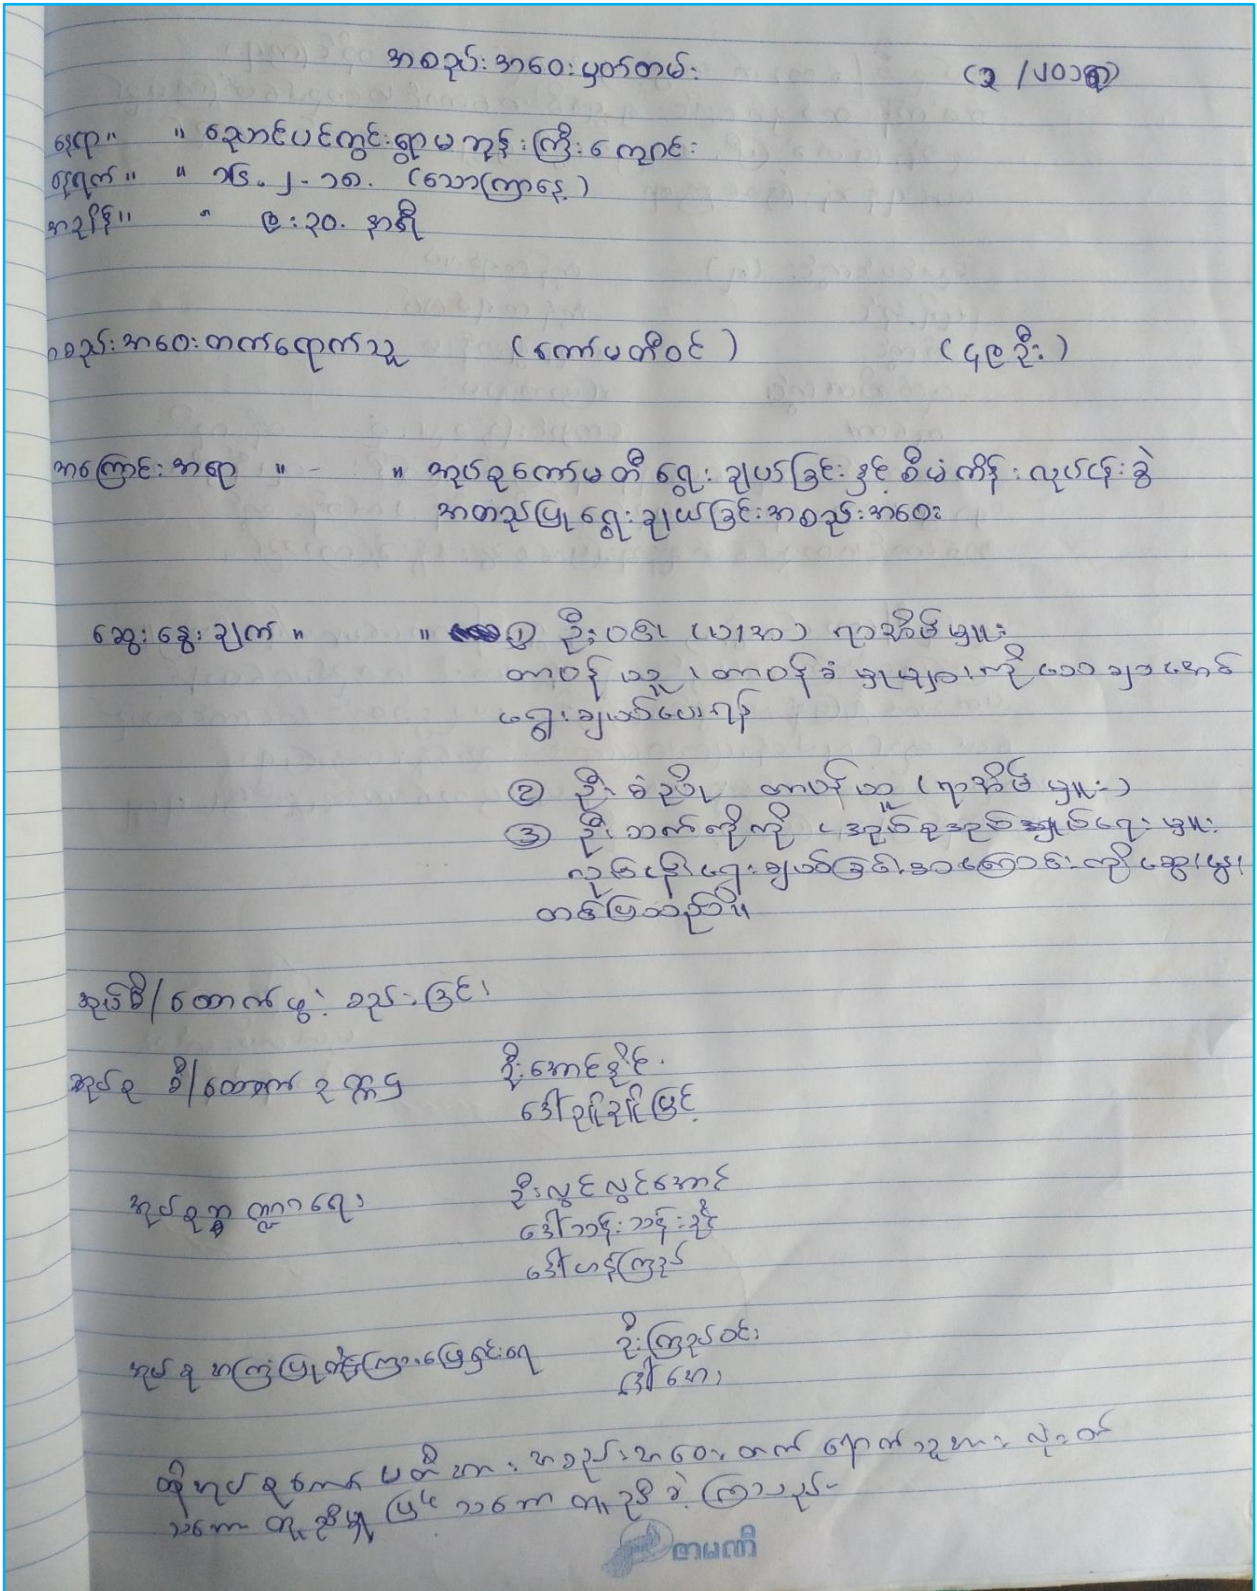 အစည်းအဝေးမှတ်တမ်း (၃/၂၀၁၈)
နေရာ။ ။ ညောင်ပင်ကွင်းရွာမဘုန်းကြီးကျောင်း
နေ့ရက်။ ။ ၁၆.၂.၁၈. (သောကြာနေ့)
အချိန်။ ။ ၉:၃၀. နာရီ
အစည်းအဝေးတက်ရောက်သူ (ကော်မတီဝင်) (၄၉ဦး)
အကြောင်းအရာ ။ - ။ အုပ်စုကော်မတီရွေးချယ်ခြင်းနှင့် စီမံကိန်းလုပ်ငန်းခွဲ
အတည်ပြုရွေးချယ်ခြင်းအစည်းအဝေး
ဆွေးနွေးချက် ။ ။ ① ဦး (ယ/အ) ရာအိမ်မှူး
တာဝန်ယူ၊ တာဝန်ခံမှုများကို သေချာအောင်
ရွေးချယ်ပေးရန်
② ဦးစံဦး တာဝန်ယူ (ရာအိမ်မှူး)
③ ဦးသက်ကိုကို ၊ အုပ်စုအုပ်ချုပ်ရေးမှူး
လုပ်ငန်းရွေးချယ်ခြင်းအကြောင်းကို ဆွေးနွေး
တင်ပြသည်။
အုပ်စီ/ထောက်ဖွဲ့စည်းခြင်း
အုပ်စု စီ/ထောက် ဥက္ကဌ ဦးအောင်နိုင်
ဒေါ်ချိုချိုမြင့်
အုပ်စုဘဏ္ဍာရေး ဦးလွင်လွင်အောင်
ဒေါ်သန်းသန်းနွဲ့
ဒေါ်ဟန်ကြည်
အုပ်စု အကြံပြုတိုင်ကြားဖြေရှင်းရေး ဦးကြည်ဝင်း
ဒေါ်အေး
ထိုအုပ်စုကော်မတီအား အစည်းအဝေးတက်ရောက်သူအားလုံးက
သဘောတူညီမှုဖြင့် သဘောတူညီခဲ့ကြသည်။
ဇာမဏီ